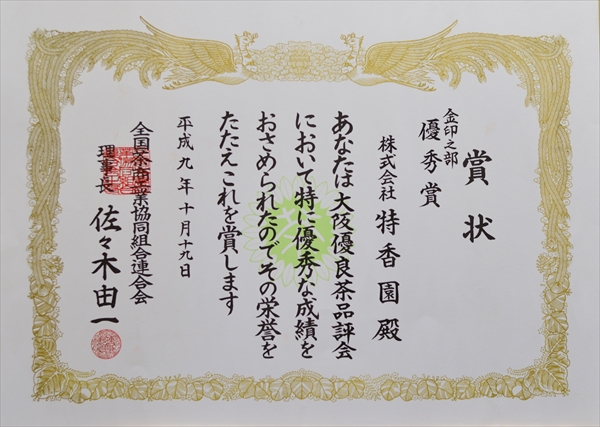 賞状
金印之部
優秀賞
株式会社 特香園殿
あなたは大阪優良茶品評会
において特に優秀な成績を
おさめられたのでその栄誉を
たたえこれを賞します
平成九年十月十九日
全国茶商工業協同組合連合会
理事長 佐々木由一